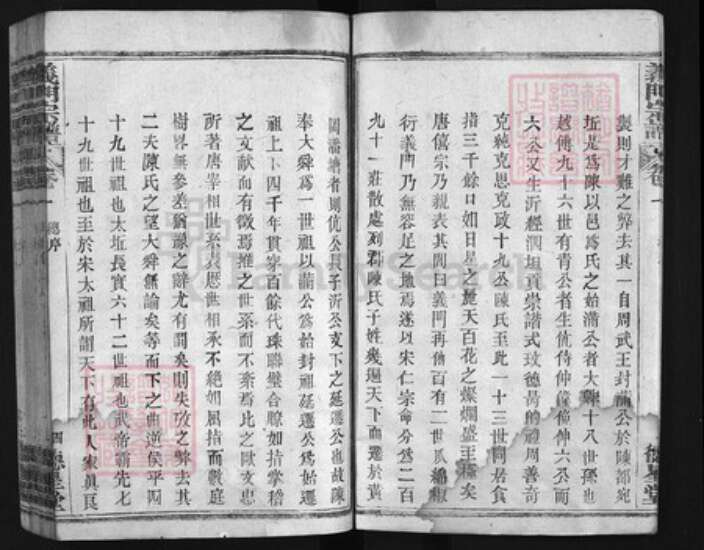 製則才難之弊去其一自周武王封滿公於陳都宛
坵是爲陳以邑爲氏之始滿公者大舜十八世孫也
越傳九十六世有青公者生伉侍仲僅伸六公而
六公又生沂經潤坦賁崇諧式玟德昺的禮周善奇
克純克思克政十九公陳氏至此一十三世同居食
指三千餘口如日星之麗天百花之燦爛盛王矣
唐僖宗乃親表其閭曰義門再僑百有二世瓜綿椒
衍義門乃無容足之地焉遂以宋仁宗命分爲二百
九十一莊散處列郡陳氏子姓幾遍天下而遷於黃
岡麻者則伉公長子沂公支下之延遷公也故陳
奉大舜爲一世祖以滿公爲始封祖延遷公爲始遷
祖上下四千年貫穿百餘代珠聯璧合瞭如指掌稽
之文献而有徵焉推之世系而不紊焉比之歐文忠
所著唐宰相世系表歷世相承不絶如屈指而數庭
樹畧無參差猶豫之辭尤有間矣則失攷之弊去其
二夫陳氏之望大舜無論矣等而下之曲逆侯平四
十九世祖也太坵長實六十二世祖也武帝霸先七
十九世祖也至於宋太祖所謂天下有此人家眞良
義門宗譜
卷一
總序
四
德星堂
FamilySearch